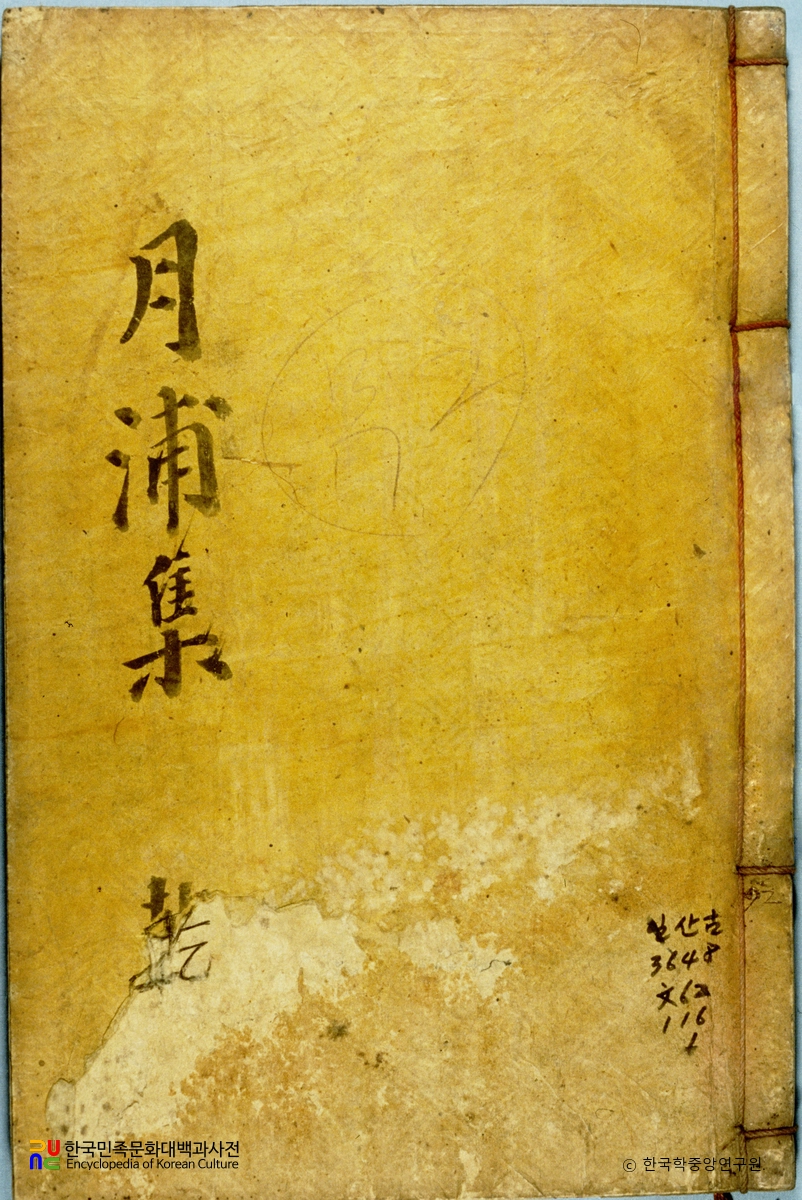 月浦集
乾
산古
3648
文62
116
1
한국민족문화대백과사전
Encyclopedia of Korean Culture
© 한국학중앙연구원